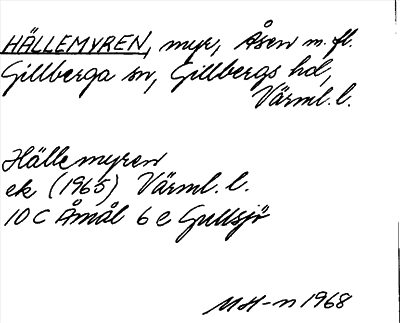 HÄLLEMYREN, myr, Åsen m.fl.
Gillberga sn, Gillbergs hd,
Värml. l.
Hällemyren
ek (1965) Värml. l.
10 C Åmål 6 e Gullsjö
MH-n 1968